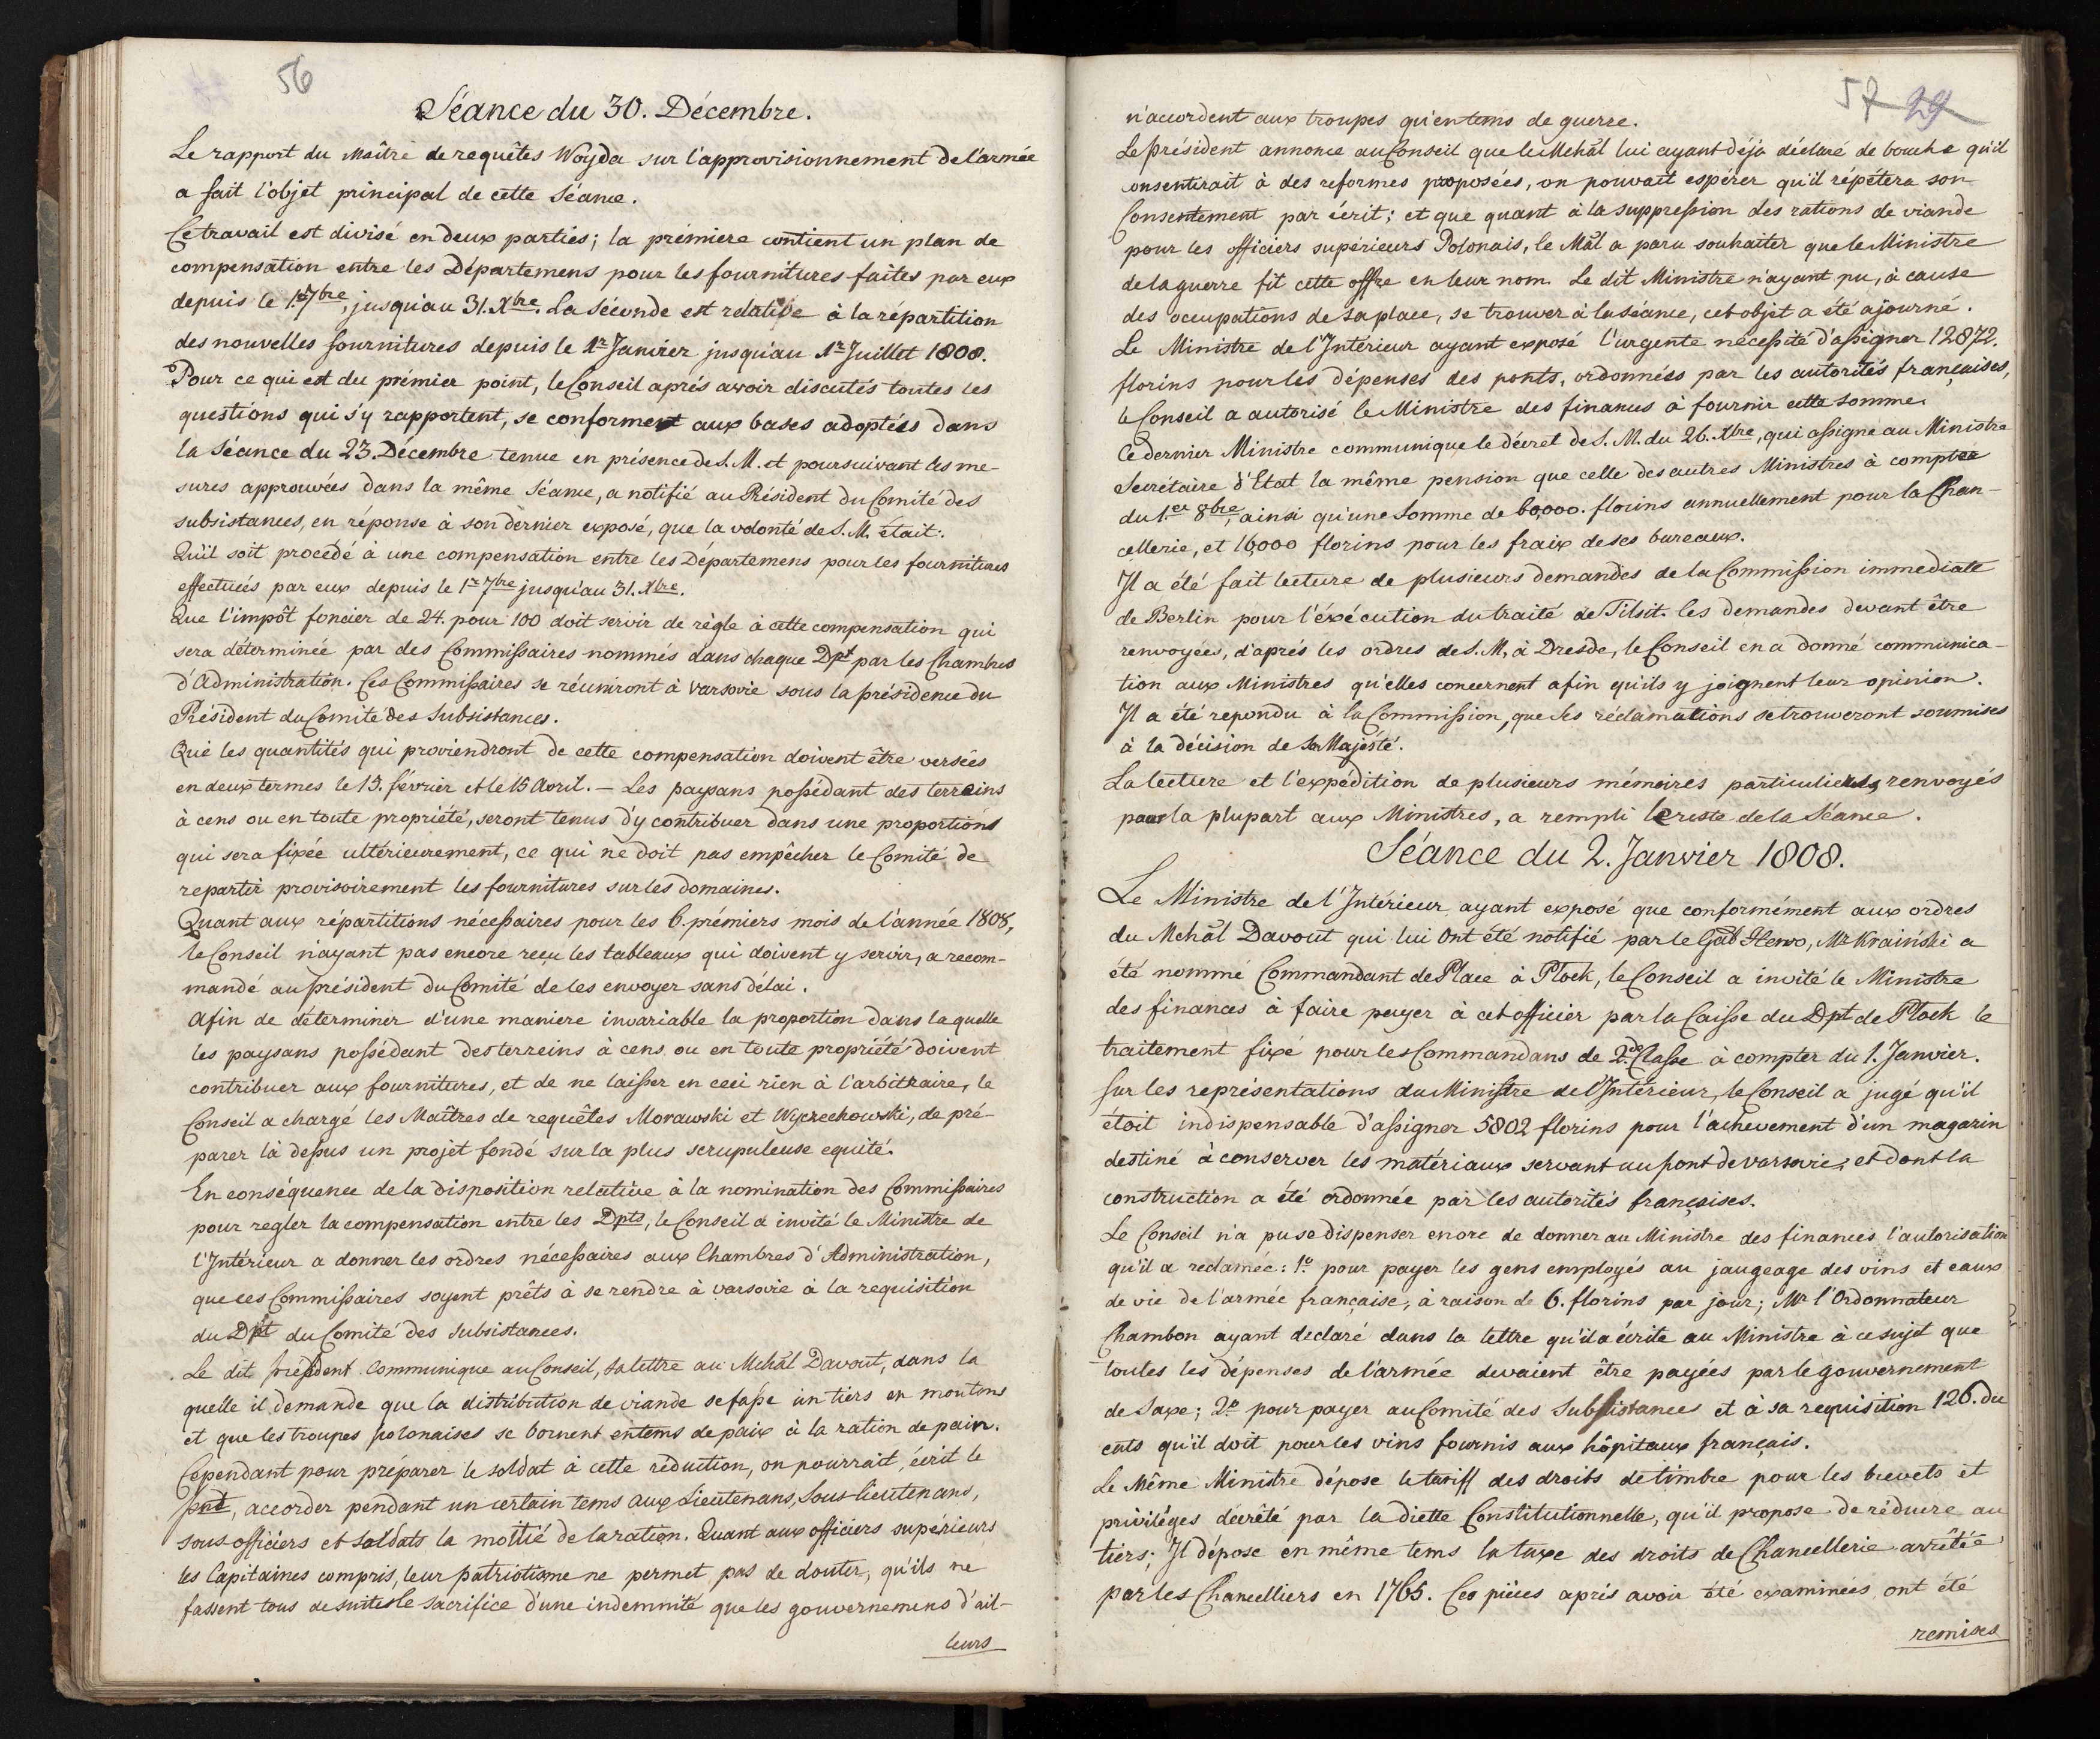 56
Séance du 30. Décembre.
Le rapport du Maître de requêtes Woyda sur l'approvisionnement de l'armée
a fait l'objet principal de cette Séance.
Ce travail est divisé en deux parties; la prémiere contient un plan de
compensation entre les Départemens pour les fournitures faites par eux
depuis le 1r 7bre, jusqu'au 31. Xbre. La Séconde est relative à la répartition
des nouvelles fournitures depuis le 1r Janvier jusqu'au 1r Juillet 1808.
Pour ce qui est du prémier point, le Conseil aprés avoir discutés toutes les
questions qui s'y rapportent, se conforment aux bases adoptées dans
la Séance du 23. Décembre tenue en présence de S. M. et poursuivant les me-
sures approuvées dans la même Séance, a notifié au Président du Comité des
subsistances, en réponse à son dernier exposé, que la volonté de S. M. était:
Qu'il soit procédé à une compensation entre les Départemens pour les fournitures
effectuées par eux depuis le 1r 7bre jusqu'au 31. Xbre.
Que l'impôt foncier de 24. pour 100 doit servir de règle à cette compensation qui
sera déterminée par des Commissaires nommés dans chaque Dpt par les Chambres
d'Administration. Ces Commissaires se réuniront à Varsovie sous la présidence du
Président du Comité des Subsistances.
Que les quantités qui proviendront de cette compensation doivent être versées
en deux termes le 15. février et le 15 Avril. – Les paysans possédant des terreins
à cens ou en toute propriété, seront tenus d'y contribuer dans une proportions
qui sera fixée ultérieurement, ce qui ne doit pas empêcher le Comité de
repartir provisoirement les fournitures sur les domaines.
Quant aux répartitions nécessaires pour les 6. prémiers mois de l'année 1808,
le Conseil n'ayant pas encore reçu les tableaux qui doivent y servir, a recom-
mandé au président du Comité de les envoyer sans délai.
Afin de déterminer d'une maniere invariable la proportion dans laquelle
les paysans possédant des terreins à cens ou en toute propriété doivent
contribuer aux fournitures, et de ne laisser en ceci rien à l'arbitraire, le
Conseil a chargé les Maîtres de requêtes Morawski et Wyczechowski, de pré-
parer là dessus un projet fondé sur la plus scrupuleuse equité.
En conséquence de la disposition relative à la nomination des Commissaires
pour regler la compensation entre les Dpts, le Conseil a invité le Ministre de
l'Intérieur a donner les ordres nécessaires aux Chambres d'Administration,
que ces Commissaires soyent prêts à se rendre à Varsovie à la requisition
du Dpt du Comité des subsistances.
Le dit président communique au Conseil, sa lettre au Mchâl Davout, dans la
quelle il demande que la distribution de viande se fasse un tiers en moutons
et que les troupes polonaises se bornent en tems de paix à la ration de pain.
Cependant pour préparer le soldat à cette réduction, on pourrait, écrit le
pnt, accorder pendant un certain tems aux Lieutenans, Sous-lieutenans,
sous-officiers et soldats la moitié de la ration. Quant aux officiers supérieurs
les Capitaines compris, leur patriotisme ne permet pas de douter, qu'ils ne
fassent tous de suite le sacrifice d'une indemnité que les gouvernemens d'ail-
leurs
57 29
n'accordent aux troupes qu'en tems de guerre.
Le président annonce au Conseil que le Mchâl lui ayant déja déclaré de bouche qu'il
consentirait à des reformes proposées, on pouvait espérer qu'il répétera son
Consentement par écrit; et que quant à la suppression des rations de viande
pour les officiers supérieurs Polonais, le Mâl a paru souhaiter que le Ministre
de la guerre fit cette offre en leur nom. Le dit Ministre n'ayant pu, à cause
des occupations de sa place, se trouver à la séance, cet objet a été ajourné.
Le Ministre de l'Intérieur ayant exposé l'urgente nécessité d'assigner 12872.
florins pour les dépenses des ponts, ordonnées par les autorités françaises,
le Conseil a autorisé le Ministre des finances à fournir cette somme.
Ce dernier Ministre communique le décret de S. M. du 26. Xbre, qui assigne au Ministre
Secrétaire d'Etat la même pension que celle des autres Ministres à compter
du 1.er 8bre, ainsi qu'une Somme de 60,000. florins annuellement pour la Chan-
cellerie, et 16,000 florins pour les fraix de ses bureaux.
Il a été fait lecture de plusieurs demandes de la Commission immediate
de Berlin pour l'éxécution du traité de Tilsit. les demandes devant être
renvoyées, d'aprés les ordres de S. M, à Dresde, le Conseil en a donné communica-
tion aux Ministres qu'elles concernent afin qu'ils y joignent leur opinion.
Il a été repondu à la Commission, que ses réclamations se trouveront soumises
à la décision de Sa Majesté.
La lecture et l'expédition de plusieurs mémoires particuliers, renvoyés
pour la plupart aux Ministres, a rempli le reste de la Séance.
Séance du 2. Janvier 1808.
Le Ministre de l'Intérieur ayant exposé que conformément aux ordres
du Mchâl Davout qui lui ont été notifié par le Gâl Hervo, Mr Kraiński a
été nommé Commandant de Place à Płock, le Conseil a invité le Ministre
des finances à faire payer à cet officier par la Caisse du Dpt de Płock le
traitement fixé pour les Commandans de 2.de Classe à compter du 1. Janvier.
Sur les représentations du Ministre de l'Intérieur, le Conseil a jugé qu'il
étoit indispensable d'assigner 5802 florins pour l'achevement d'un magazin
destiné à conserver les matériaux servant au pont de Varsovie, et dont la
construction a été ordonnée par les autorités françaises.
Le Conseil n'a pu se dispenser encre de donner au Ministre des finances l'autorisation
qu'il a reclamée: 1o pour payer les gens employés au jaugeage des vins et eaux
de vie de l'armée française, à raison de 6. florins par jour; Mr l'Ordonnateur
Chambon ayant declaré dans la lettre qu'il a écrite au Ministre à ce sujet que
toutes les dépenses de l'armée devaient être payées par le gouvernement
de Saxe; 2o pour payer au Comité des Subsistances et à sa requisition 126. du
cats qu'il doit pour les vins fournis aux hôpitaux français.
Le Même Ministre dépose le tariff des droits de timbre pour les brevets et
privilèges décrété par la diette Constitutionnelle, qu'il propose de réduire au
tiers; Il dépose en même tems la taxe des droits de Chancellerie arrêtée
par les Chancelliers en 1765. Ces pièces aprés avoir été examinées ont été
remises